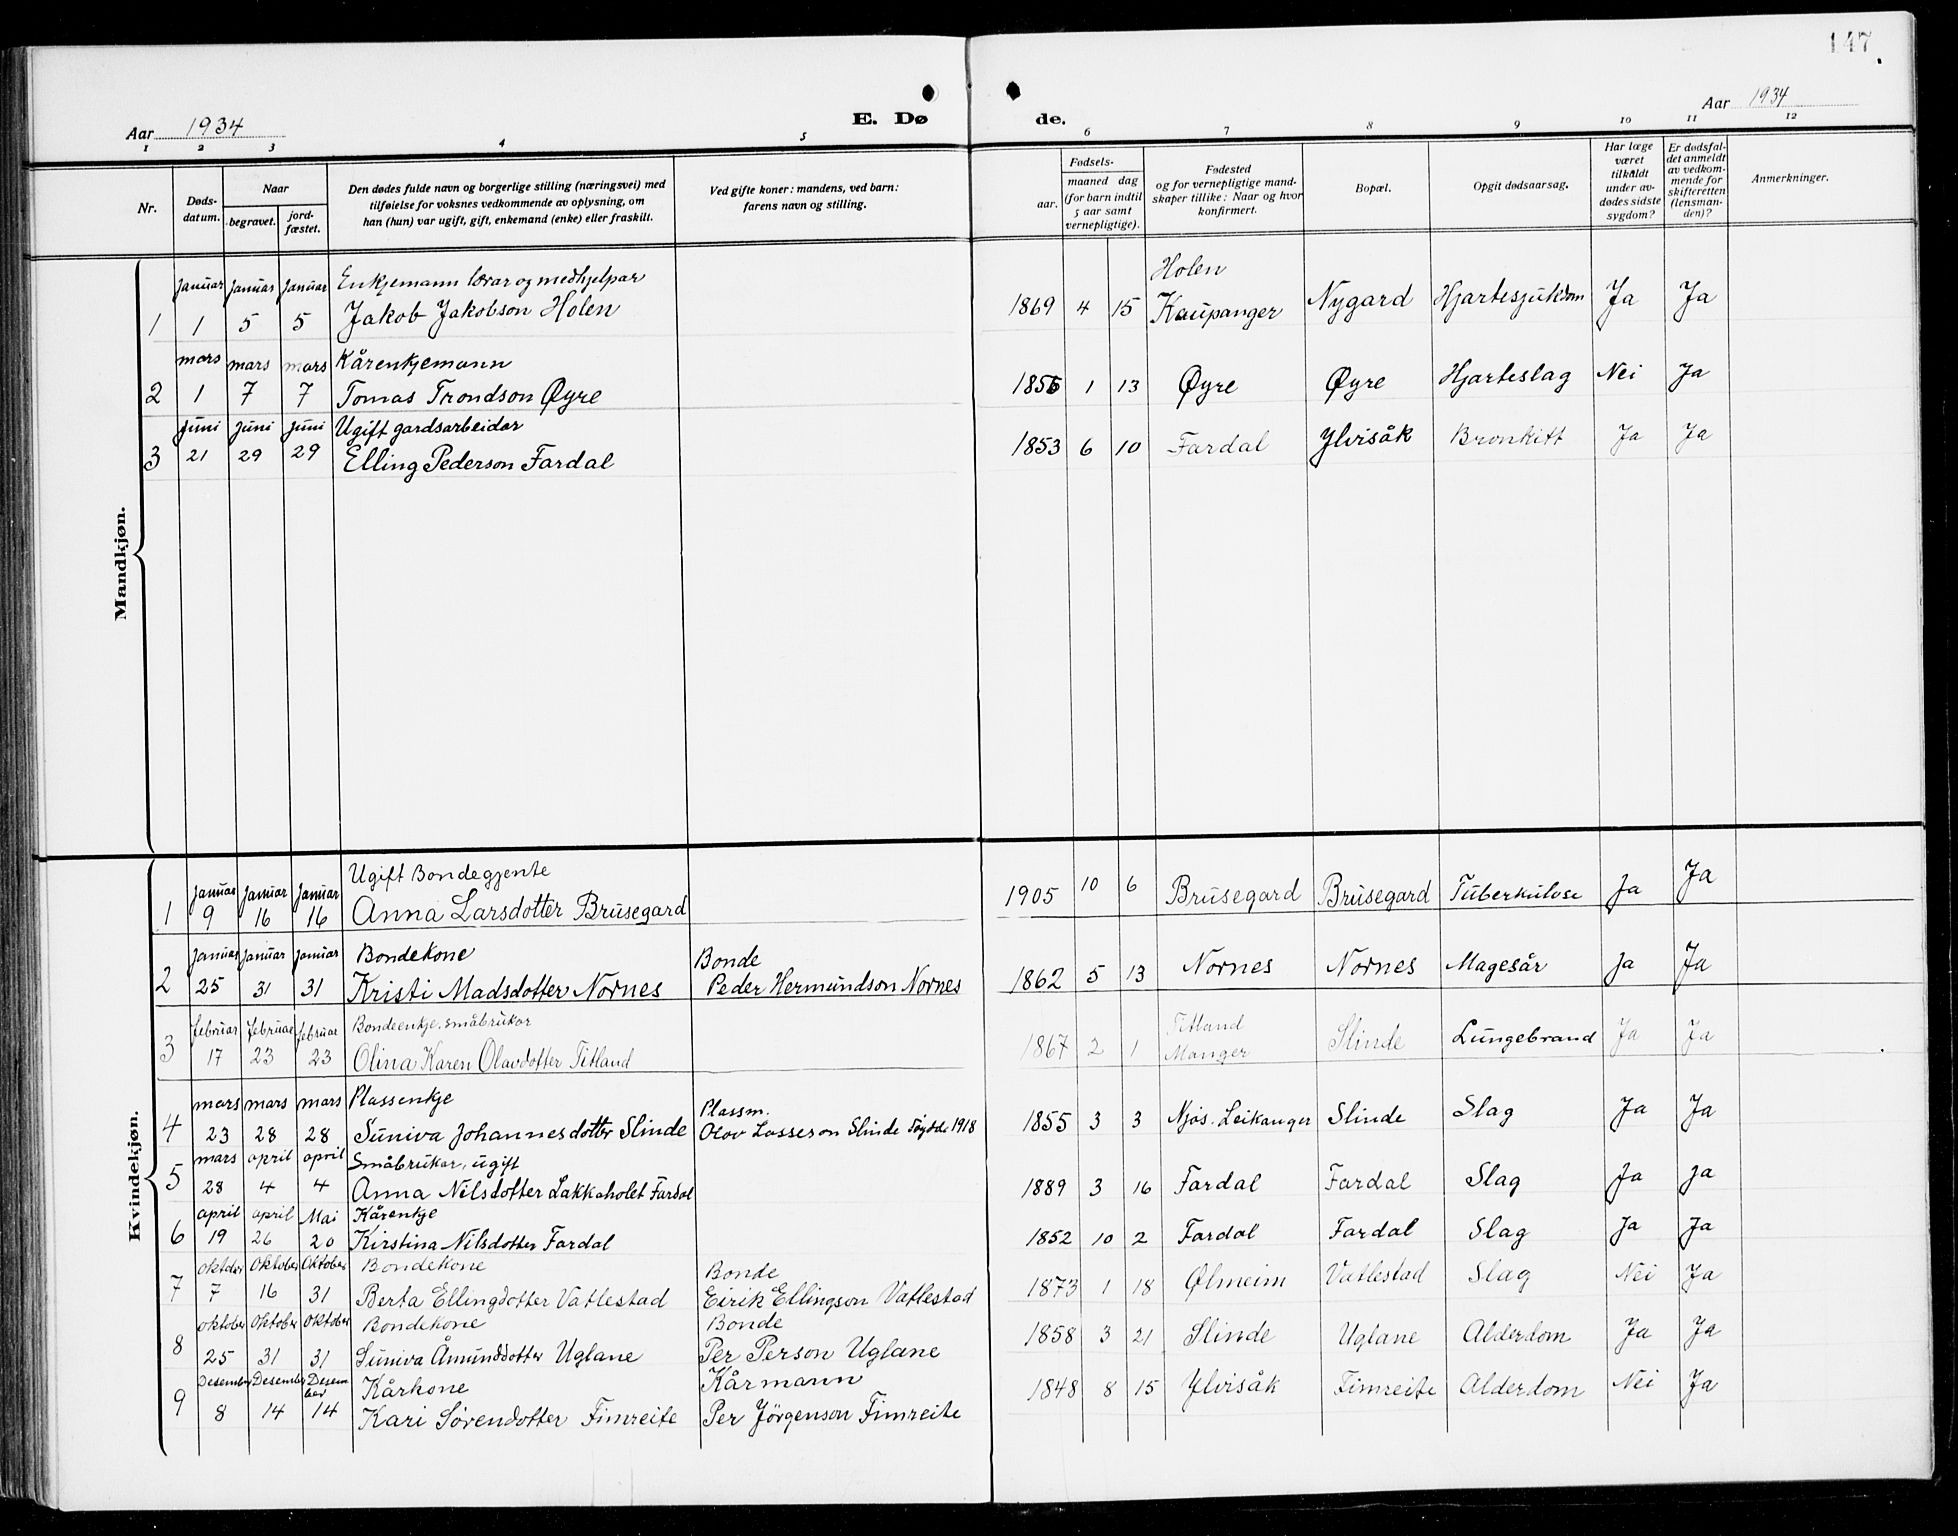 147
Aar 1934 E. Dø de. Aar 1934
1 2 3 4 5 6 7 8 9 10 11 12
Nr. Døds-datum. Naar begravet. jord-fæstet. Den dødes fulde navn og borgerlige stilling (næringsvei) med tilføielse for voksnes vedkommende av oplysning, om han (hun) var ugift, gift, enkemand (enke) eller fraskilt. Ved gifte koner: mandens, ved barn: farens navn og stilling. Fødsels- aar. maaned dag (for barn indtil 5 aar samt vernepligtige). Fødested og for vernepligtige mand-skaper tillike: Naar og hvor konfirmert. Bopæl. Opgit dødsaarsag. Har læge været tilkaldt under av-dødes sidste sygdom? Er dødsfal-det anmeldt av vedkom-mende for skifteretten (lensman-den)? Anmerkninger.
Mandkjøn.
Januar Januar Januar Enkjemann lærar og medhjelpar Holen
1 1 5 5 Jakob Jakobson Holen 1869 4 15 Kaupanger Nygard Hjartesjukdom Ja Ja
mars mars mars Kårenkjemann
2 1 7 7 Tomas Trondson Øyre 1856 1 13 Øyre Øyre Hjarteslag Nei Ja
Juni Juni Juni Ugift gardsarbeidar
3 21 29 29 Elling Pederson Fardal 1853 6 10 Fardal Ylvisåk Bronkitt Ja Ja
Kvindekjøn.
Januar Januar Januar Ugift Bondegjente
1 9 16 16 Anna Larsdotter Brusegard 1905 10 6 Brusegard Brusegard Tuberkulose Ja Ja
Januar Januar Januar Bondekone Bonde
2 25 31 31 Kristi Madsdotter Nornes Peder Hermundson Nornes 1862 5 13 Nornes Nornes Magesår Ja Ja
februar februar februar Bondeenkje. småbrukar Titland
3 17 23 23 Olina Karen Olavdotter Titland 1867 2 1 Manger Slinde Lungebrand Ja Ja
mars mars mars Plassenkje Plassm.
4 23 28 28 Suniva Johannesdotter Slinde Olav Lasseson Slinde 1918 1855 3 3 Njøs. Leikanger Slinde Slag Ja Ja
mars april april Småbrukar, ugift
5 28 4 4 Anna Nilsdotter Lakkaholet Fardal 1889 3 16 Fardal Fardal Slag Ja Ja
april april Mai Kårenkje
6 19 26 20 Kirstina Nilsdotter Fardal 1852 10 2 Fardal Fardal Slag Ja Ja
oktober Oktober Oktober Bondekone Bonde
7 7 16 31 Berta Ellingdotter Vatlestad Eirik Ellingson Vatlestad 1873 1 18 Ølmeim Vatlestad Slag Nei Ja
oktober Oktober Oktober Bondekone Bonde
8 25 31 31 Suniva Åmunddotter Uglane Per Person Uglane 1858 3 21 Slinde Uglane Alderdom Ja Ja
Desember Desember Desember Kårkone Kårmann
9 8 14 14 Kari Sørendotter Fimreite Per Jörgenson Fimreite 1848 8 15 Ylvisåk Fimreite Alderdom Nei Ja